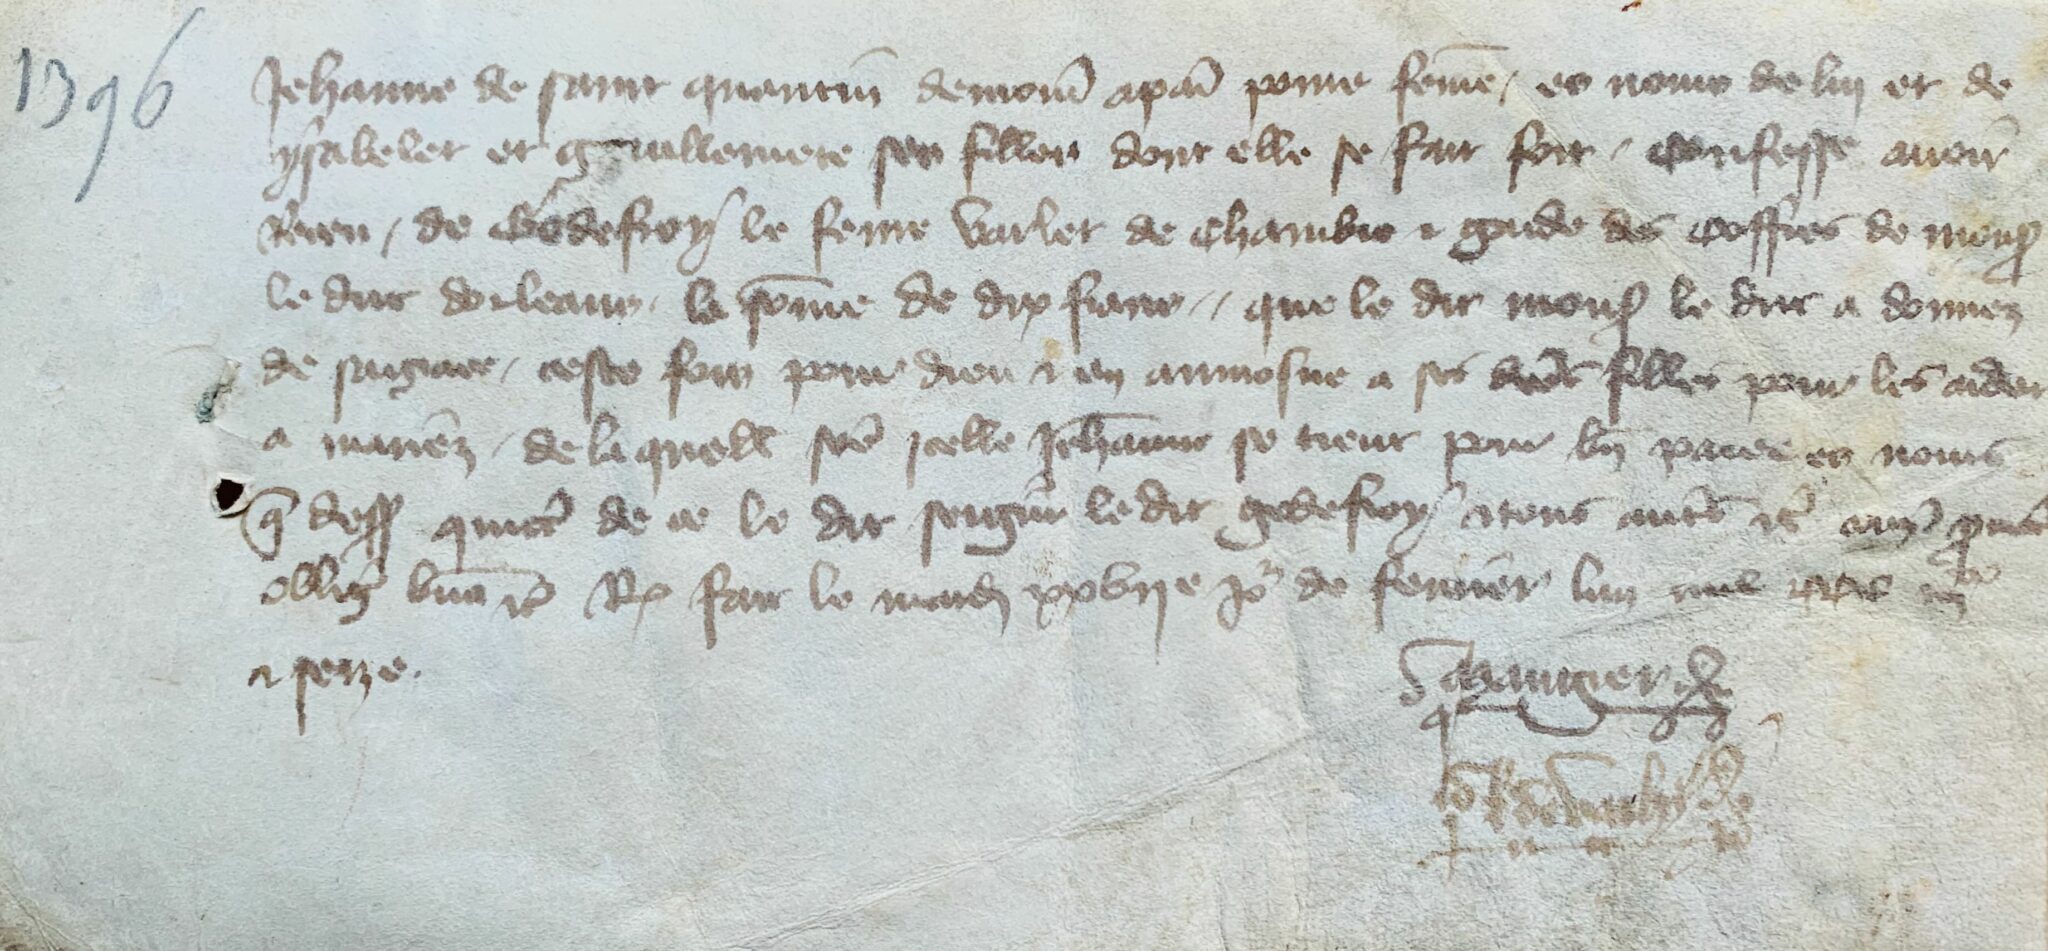 1396
Jehanne de saint quentin demour a par povre feme / es noms de lui et de
ysabelet et guillemete ses filles dont elle se fait fort / Confesse avoir
Receu / de Godefroy le fevre varlet de chambre et garde des coffres de mons
le duc dorleans / la some de dix frans // que le dit mons le duc a donnez
de sa grace / ceste fois pour dieu et en aumosne a ses dictes filles pour les aidier
a marier / de laquelle some icelle Jehanne se tient pour bn paiee es noms
q dess quicte de ce le dit seigneur le dit godefroy et tous autres etc
oblig biens etc R fait le mardi xxvije jo de fevrier lan mil ccc iiijxx
et seize.